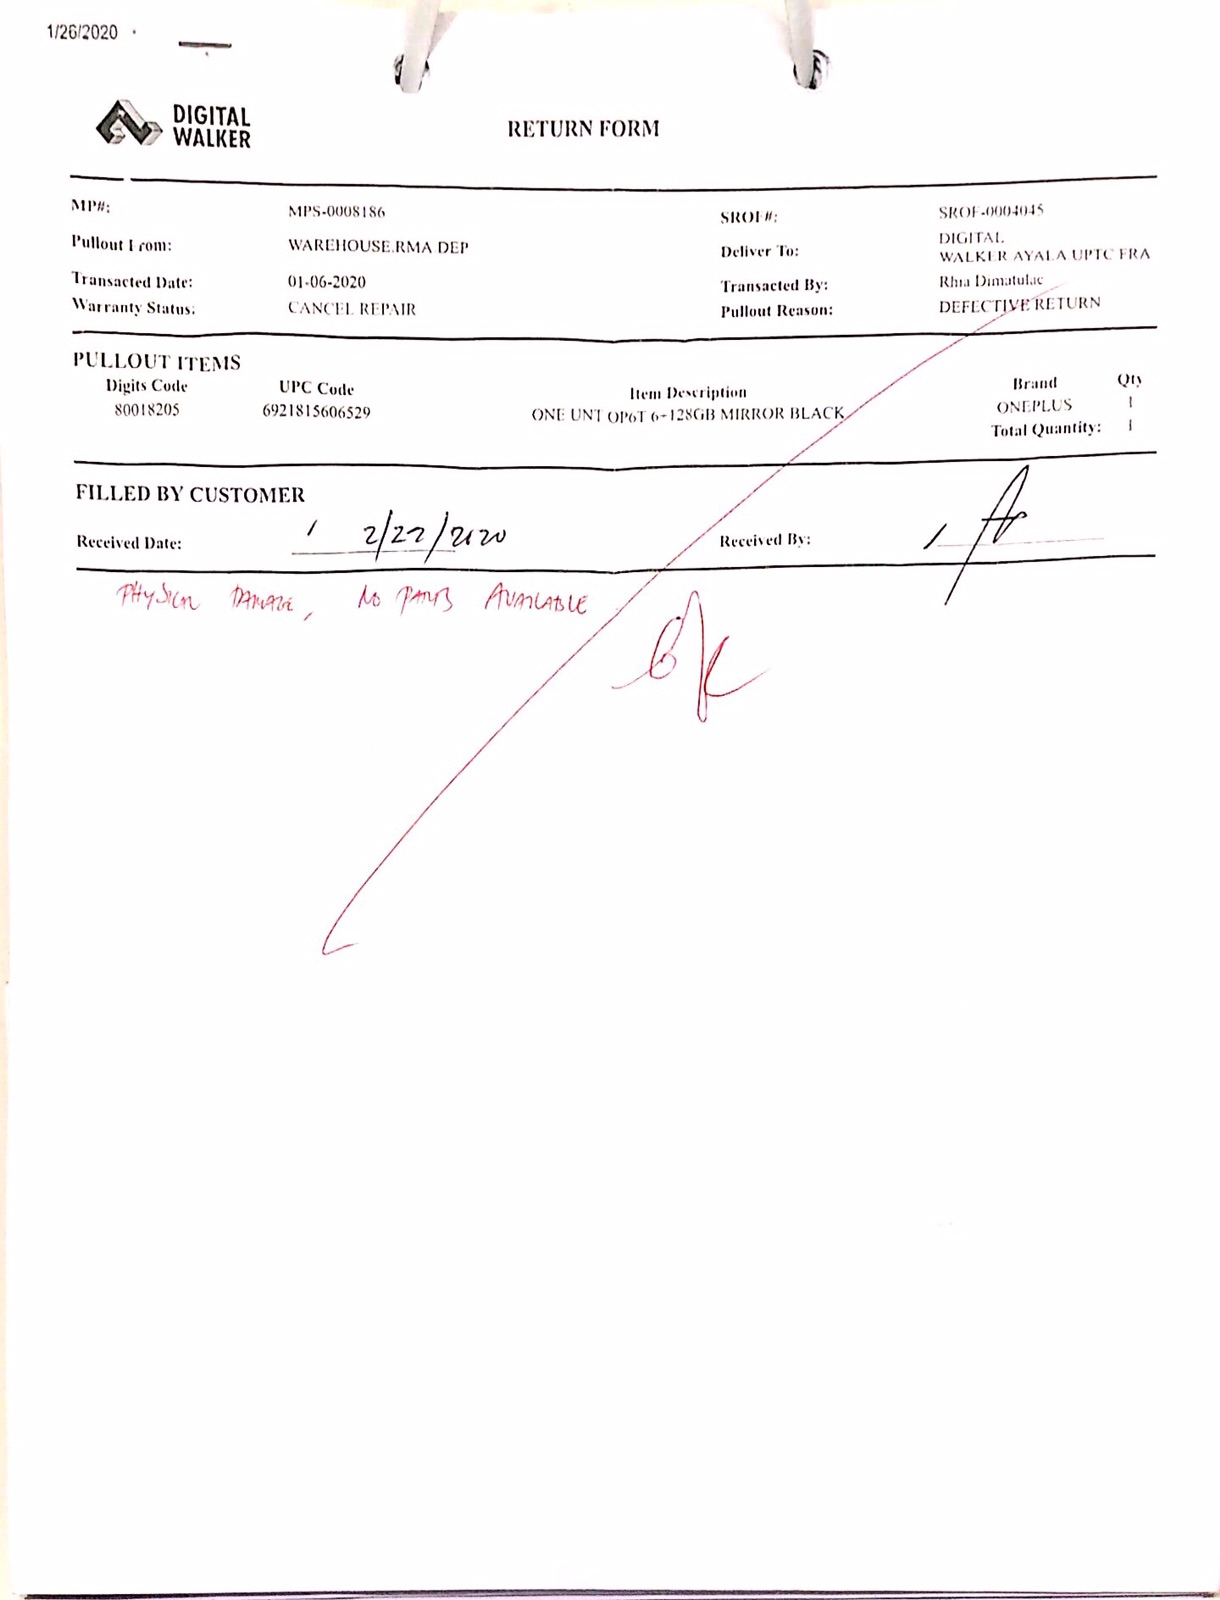 1/26/2020
DIGITAL
WALKER
RETURN FORM
MP#: MPS-0008186 SROF#: SROF-0004045
Pullout From: WAREHOUSE.RMA DEP Deliver To: DIGITAL
WALKER AYALA UPTC FRA
Transacted Date: 01-06-2020 Transacted By: Rhia Dimatulac
Warranty Status: CANCEL REPAIR Pullout Reason: DEFECTIVE RETURN
PULLOUT ITEMS
Digits Code UPC Code Item Description Brand Qty
80018205 6921815606529 ONE UNT OP6T 6+128GB MIRROR BLACK ONEPLUS 1
Total Quantity: 1
FILLED BY CUSTOMER
Received Date: 2/22/2020 Received By:
PHYSICAL DAMAGE, NO PARTS AVAILABLE